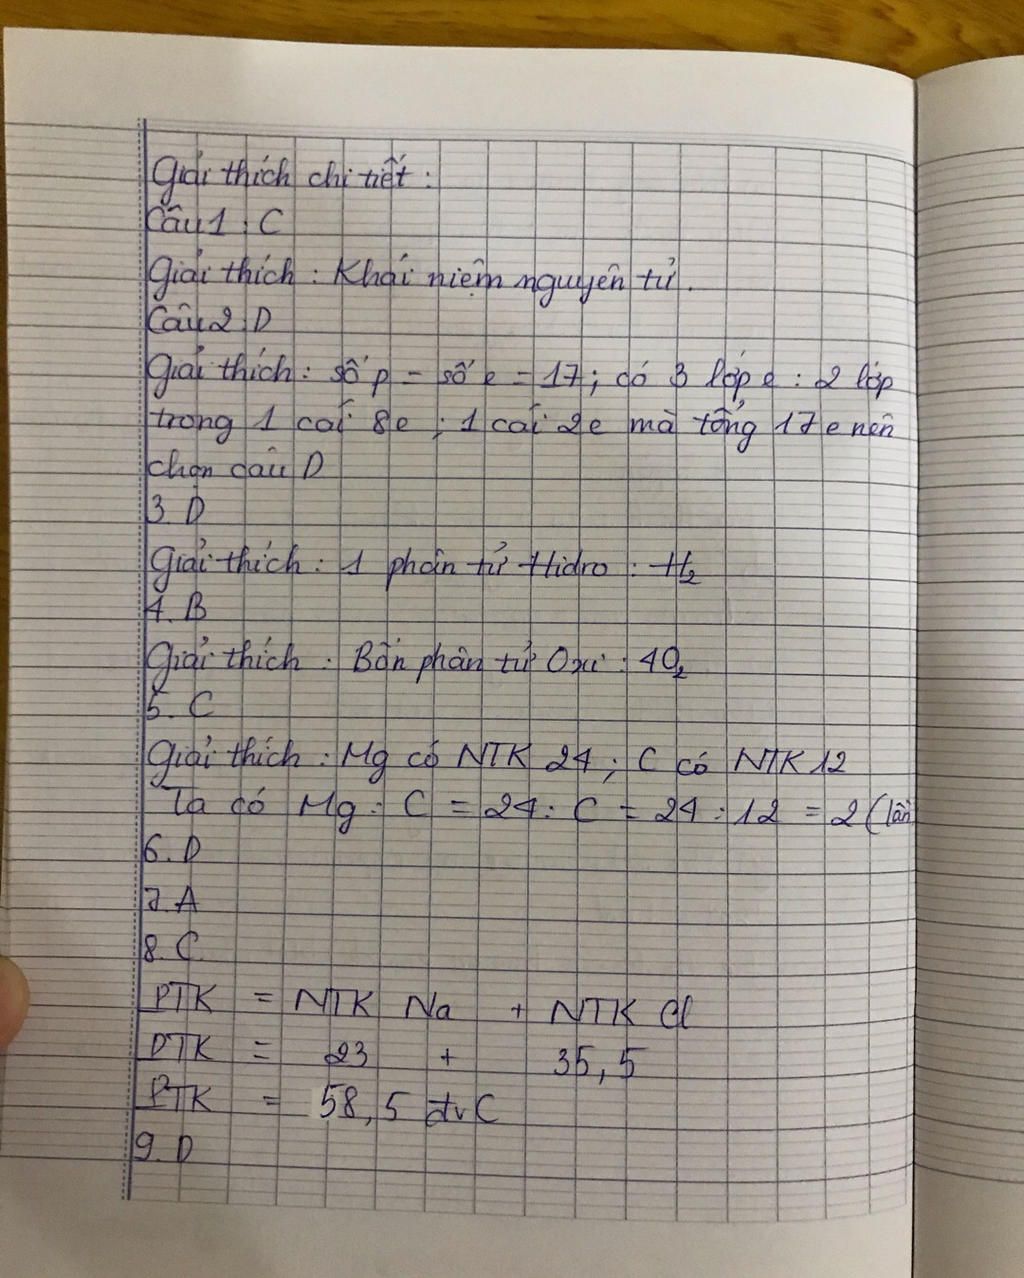 Giải thích chi tiết :
Câu 1 : C
Giải thích : Khái niệm nguyên tử.
Câu 2 : D
Giải thích : số p = số e = 17 ; có 3 lớp e : 2 lớp
trong 1 cái 8e ; 1 cái 2e mà tổng 17 e nên
chọn câu D
3. D
Giải thích : 1 phân tử Hidro : H₂
4. B
Giải thích : Bốn phân tử Oxi : 4O₂
5. C
Giải thích : Mg có NTK 24 ; C có NTK 12
Ta có Mg : C = 24 : C = 24 : 12 = 2 (lần
6. D
7. A
8. C
PTK = NTK Na + NTK Cl
PTK = 23 + 35,5
PTK = 58,5 đvC
9. D